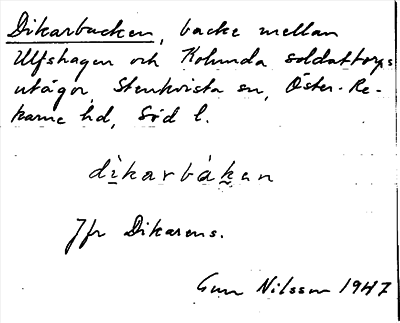 Dikarbacken, backe mellan
Ulfshagen och Kolunda soldattorps
utägor, Stenkvista sn, Öster-Re-
karne hd, Söd l.
dìkarbákan
Jfr Dikarens.
Gun Nilsson 1947